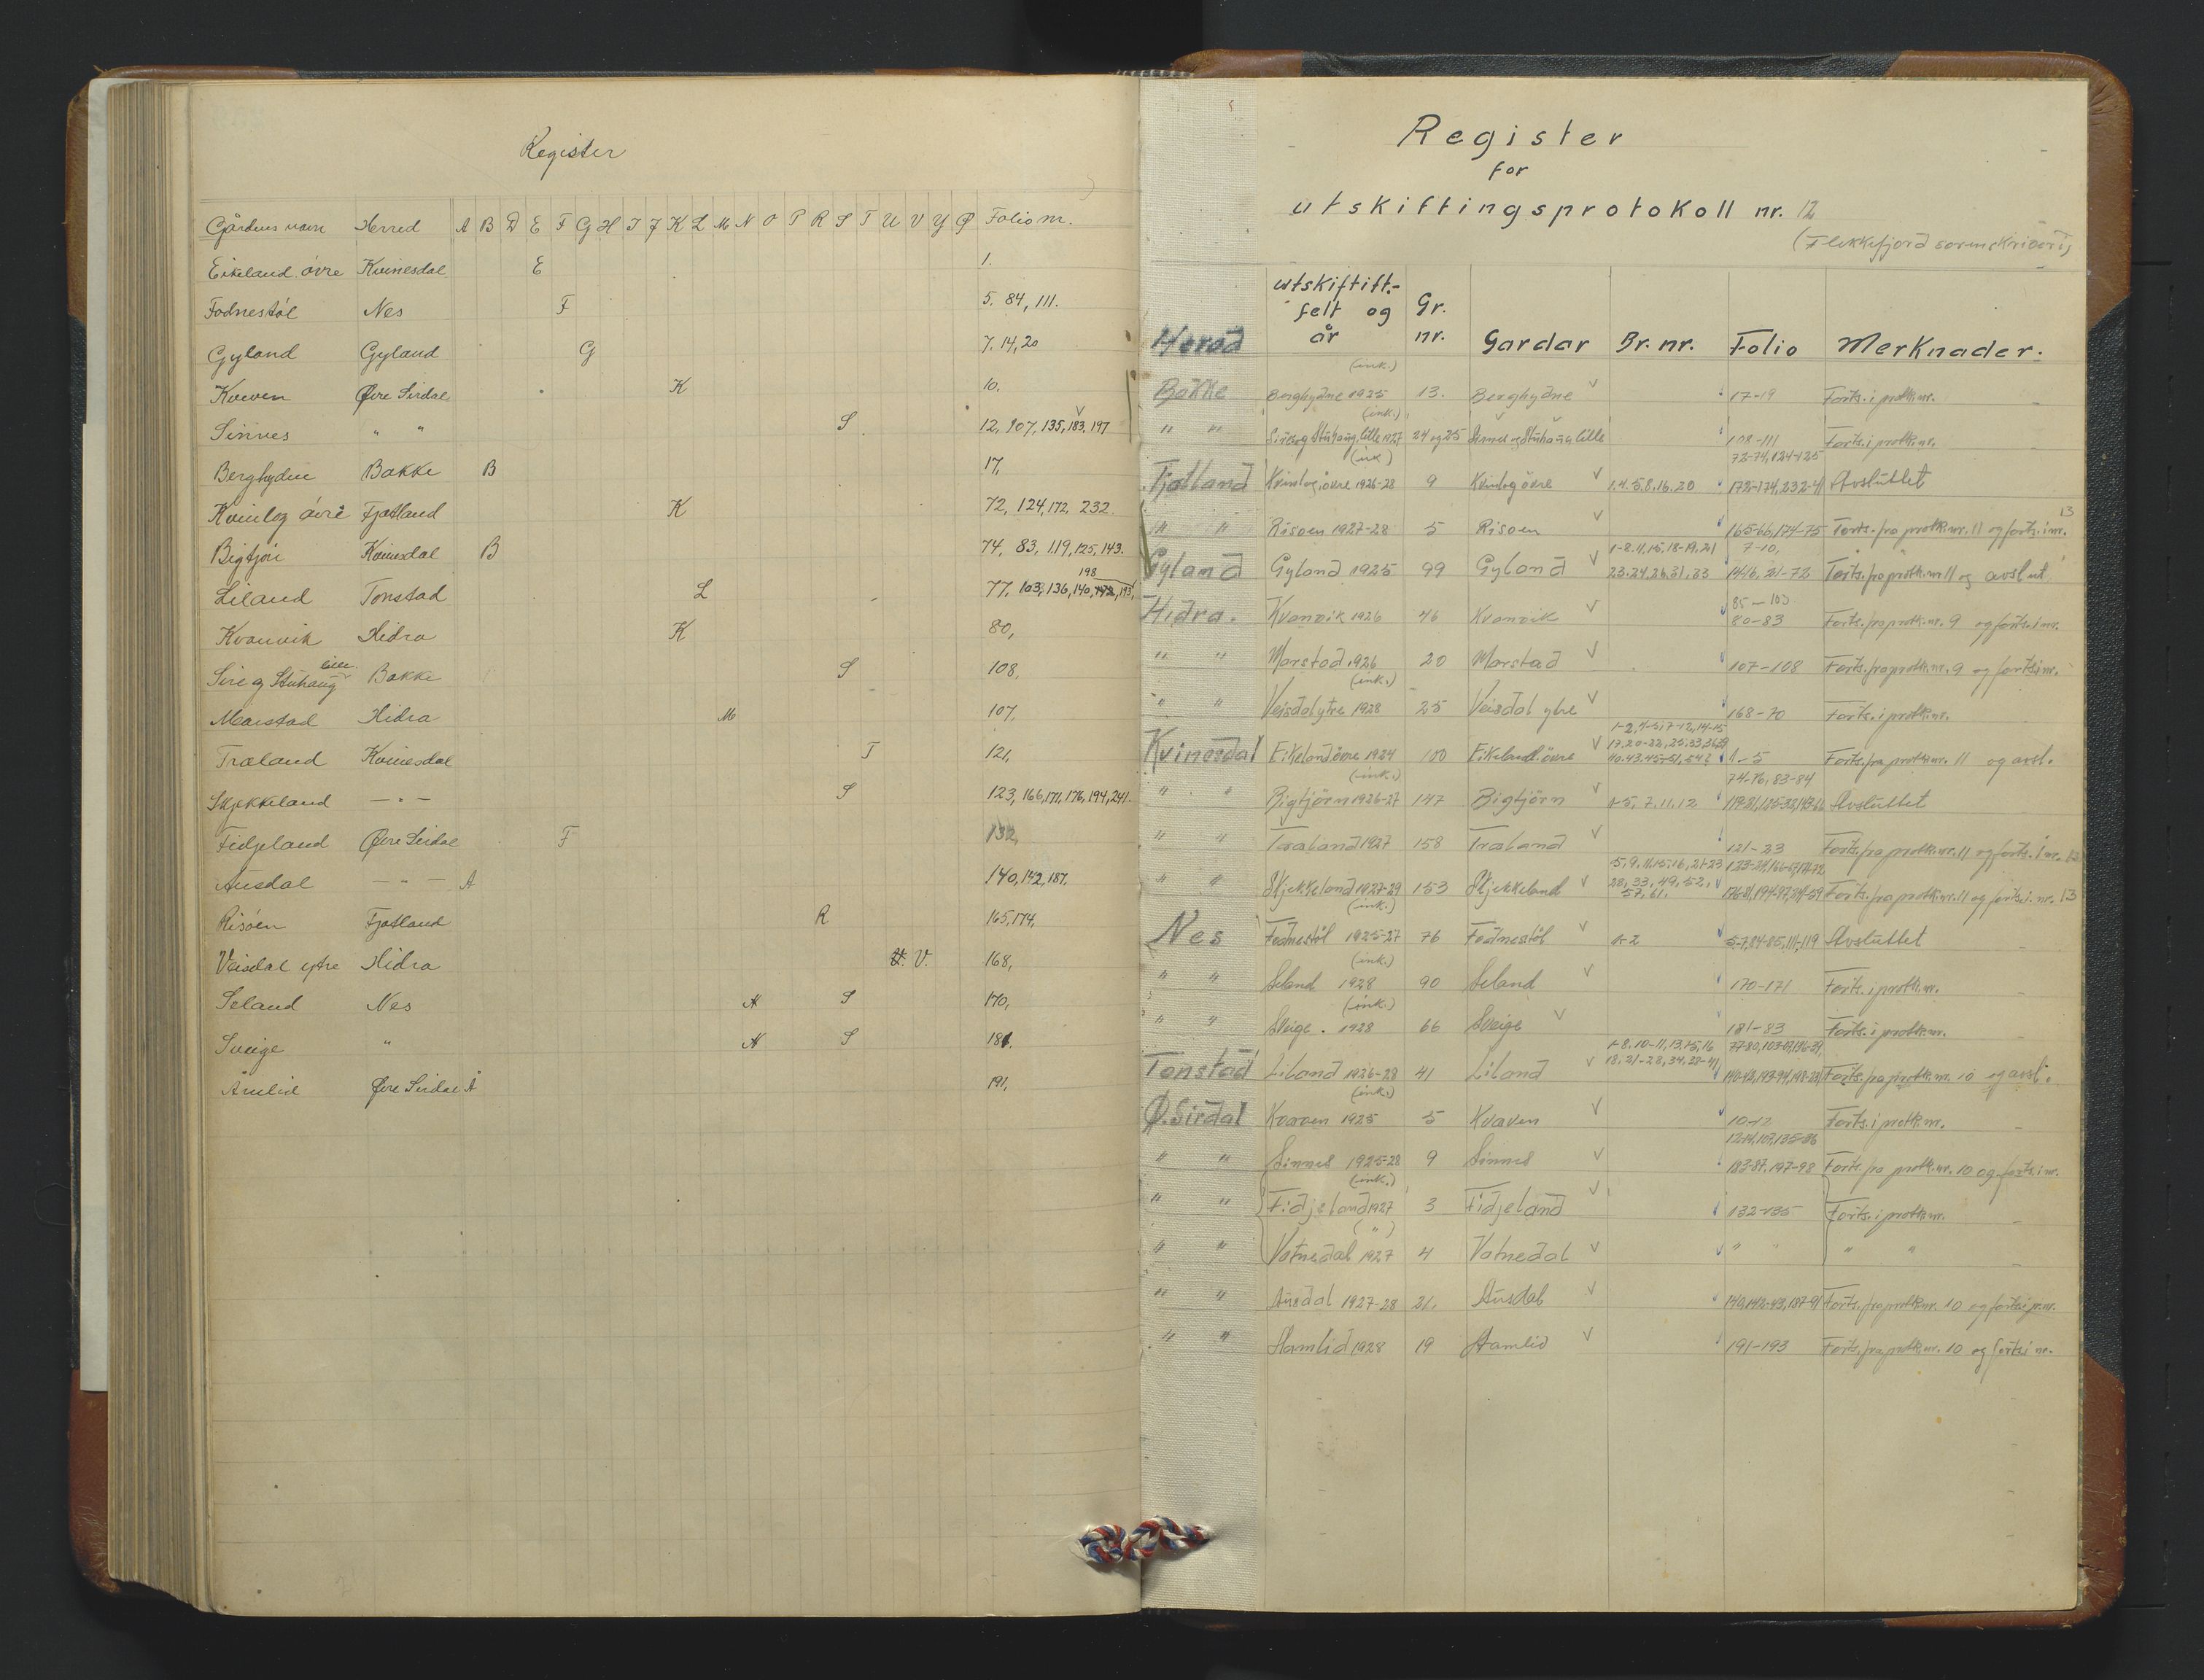 Register
Gårdens navn Herred A B D E F G H I J K L M N O P R S T U V Y Ø Folio nr.
Eikeland øvre Kvinesdal E 1.
Fodnestøl Nes F 5. 84, 111.
Gyland Gyland G 7. 14, 20
Kvæven Øvre Sirdal K 10.
Sinnes " " S 12, 107, 135, 183, 197
Berghydne Bakke B 17,
Kvinlog øvre Fjotland K 72, 124, 172, 232.
Bigtjøn Kvinesdal B 74, 83, 119, 125, 143.
198
Liland Tonstad L 77, 103, 136, 140, 142, 193,
Kvanvik Hidra K 80,
lille
Sire og Stuhaug Bakke S 108,
Marstad Hidra M 107,
Træland Kvinesdal T 121,
Skjekkeland — " — S 123, 166, 171, 176, 194, 241.
Fidjeland Øvre Sirdal F 132,
Ausdal — " — A 140, 142, 187,
Risøen Fjotland R 165, 174,
Veisdal ytre Hidra V. 168,
Seland Nes N S 170,
Sveige " N S 181.
Åmlid Øvre Sirdal Å 191,
Register
for
utskiftingsprotokoll nr. 12
(Flekkefjord sorenskriveri)
utskiftift.-
felt og Gr.
Herad år nr. Gardar Br. nr. Folio Merknader.
(ink.)
Bakke Berghydne 1925 13. Berghydne 17-19 Forts. i protk. nr.
(ink.)
" " Sire og Stuhaug, lille 1927 24 og 25 Sirnes og Stuhaug lille 108-111 Forts. i protk. nr.
(ink.) 72-74, 124-125
Fjotland Kvinlog, øvre 1926-28 9 Kvinlog øvre 1.4.-5.8.16.20 172-174, 232-41 Avsluttet
13
" " Risøen 1927-28 5 Risøen 165-66, 174-75 Forts. fra protk. nr. 11 og forts. i nr.
1-8.11,15,18-19,21 7-10,
Gyland Gyland 1925 99 Gyland 23.24,26,31.33 14-16, 21-72 Forts. fra protk. nr. 11 og avslut
85-103
Hidra. Kvanvik 1926 46 Kvanvik 80-83 Forts. fra protk. nr. 9 og forts. i nr.
" " Marstad 1926 20 Marstad 107-108 Forts. fra protk. nr. 9 og forts. i nr.
(ink.)
" " Veisdal ytre 1928 25 Veisdal ytre 168-70 Forts. i protk. nr.
1-2,4-5,7-12,14-15
17.20-22,25.33,36,39
Kvinesdal Eikeland, øvre 1924 100 Eikeland. øvre 40.43.45-51,54 1-5 Forts. fra protk. nr. 11 og avsl.
(ink.) 74-76, 83-84
" " Bigtjörn 1926-27 147 Bigtjörn 1-5, 7.11.12 Avsluttet
" " Træland 1927 158 Træland 121-23 Forts. fra protk. nr. 11 og forts. i nr. 13
5,9,11,15,16,21-23 123-24, 166-67, 171-72
28, 33, 49, 52,
" " Skjekkeland 1927-29 153 Skjekkeland 57, 61. 176-81, 194-97, 241-59 Forts. fra protk. nr. 11 og forts. i. nr. 13
(ink.)
Nes Fodnestöl 1925-27 76 Fodnestöl 1-2 5-7, 84-85, 111, 119 Avsluttet
(ink.)
" " Seland 1928 90 Seland 170-171 Forts. i protk. nr.
(ink.)
" " Sveige. 1928 66 Sveige 181-83 Forts. i protk. nr.
1-8.10-11,13,15,16 77-80, 103-07, 136-39,
18.21-28,34,38-41
Tonstad Liland 1926-28 41 Liland 140-42, 193-94, 198-231 Forts. fra protk. nr. 10 og avsl.
(ink.)
Ø. Sirdal Kvæven 1925 5 Kvæven 10-12 Forts. i protk. nr.
12-14, 107, 135-36
" " Sinnes 1925-28 9 Sinnes 183-87, 197-98 Forts. fra protk. nr. 10 og forts. i nr.
(ink.)
" " Fidjeland 1927 3 Fidjeland 132-135 Forts. i protk. nr.
( " )
" " Vatnedal 1927 4 Vatnedal " " "
" " Ausdal 1927-28 21. Ausdal 140, 142-43, 187-91 Forts. fra protk. nr. 10 og forts. i p. nr.
" " 1928 19 191-193 Forts. fra protk. nr. 10 og forts. i nr.